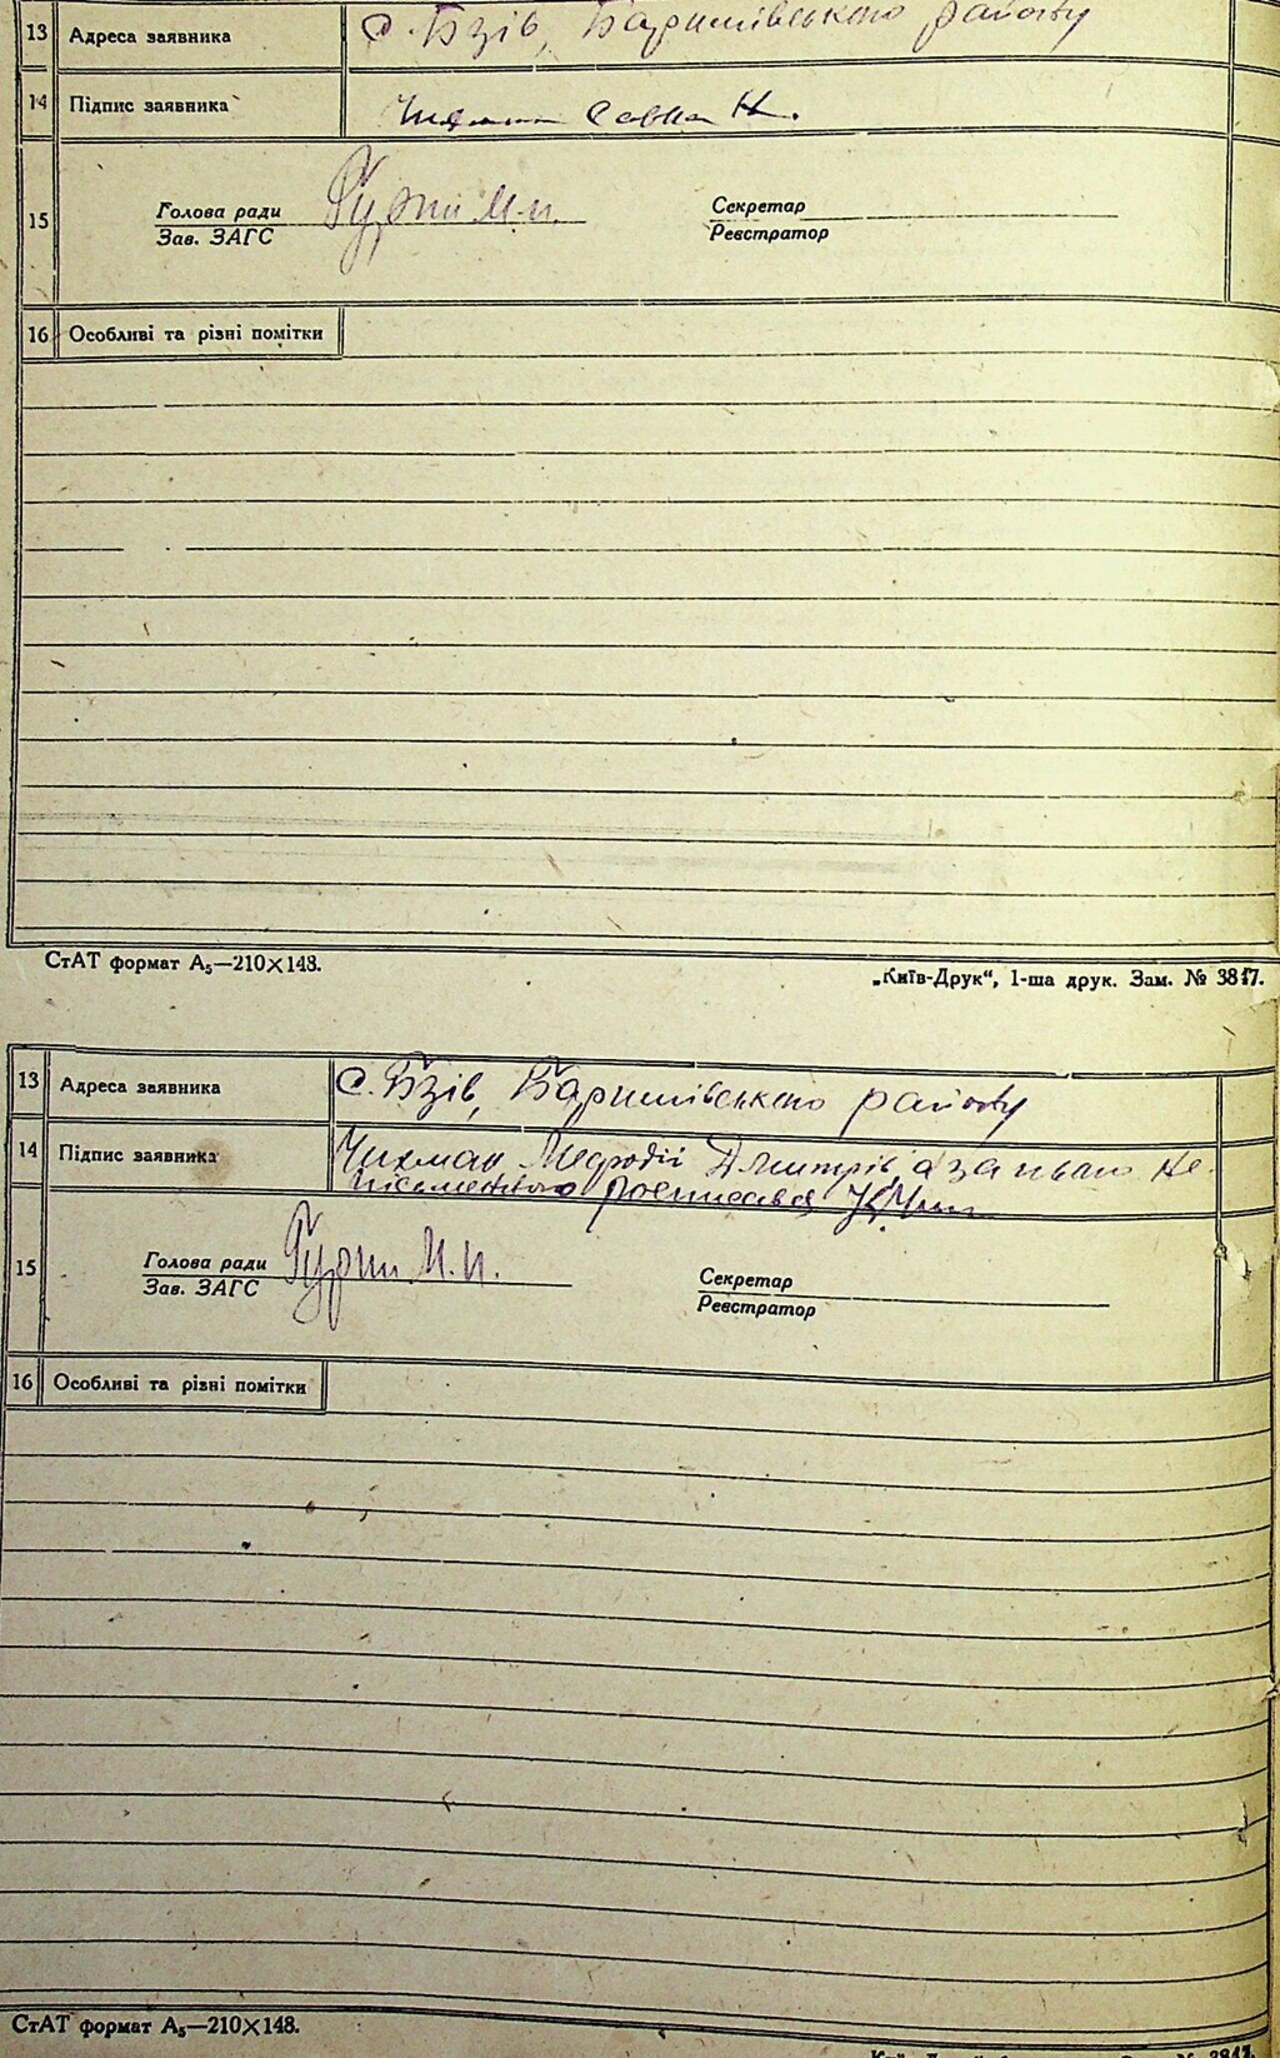 13 Адреса заявника с. Бзів, Баришівського району
14 Підпис заявника Савка Н.
15 Голова ради Гурин М.И. Секретар
Зав. ЗАГС Реєстратор
16 Особливі та різні помітки
СтАТ формат А₅—210×148. „Київ-Друк“, 1-ша друк. Зам. № 3817.
13 Адреса заявника с. Бзів, Баришівського району
14 Підпис заявника Чихман Мефодій Дмитрів а за нього не-
письменного росписався
15 Голова ради Гурин М.И. Секретар
Зав. ЗАГС Реєстратор
16 Особливі та різні помітки
СтАТ формат А₅—210×148.
№ 3817.